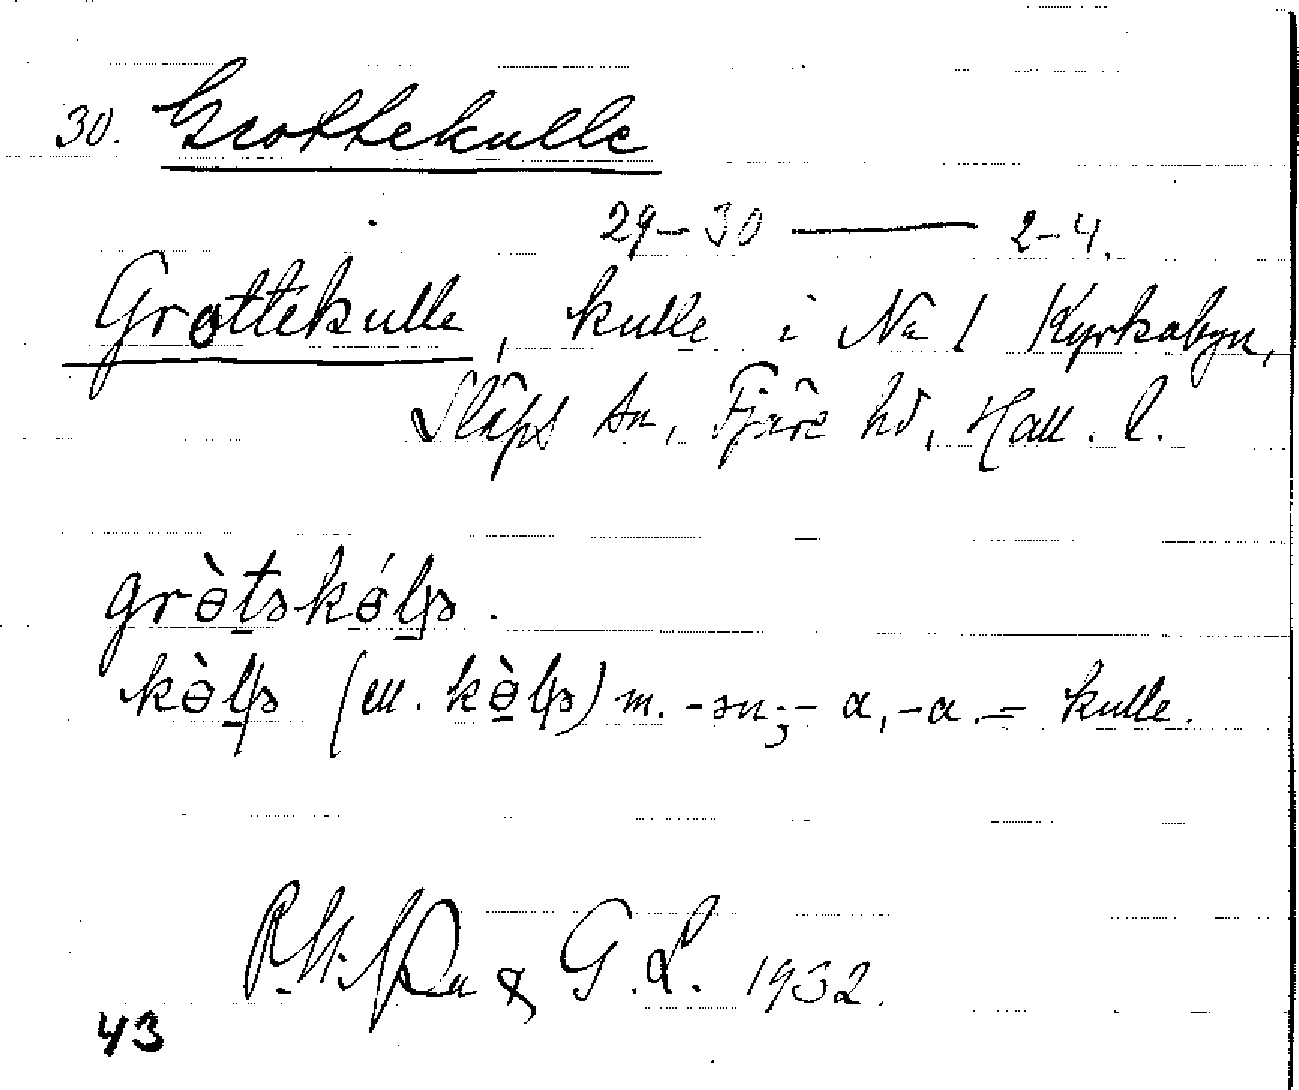 30. Grottekulle
29-30 — 2-4.
Grottekulle, kulle i No 1 Kyrkobyn,
Släps sn, Fjäre hd, Hall. l.
grɵ̀təkɵ́lʃə.
kɵ̀lʃə (ell. kɵ̀lʃə) m. -ən; -a, -a. = kulle.
& G. L. 1932.
43